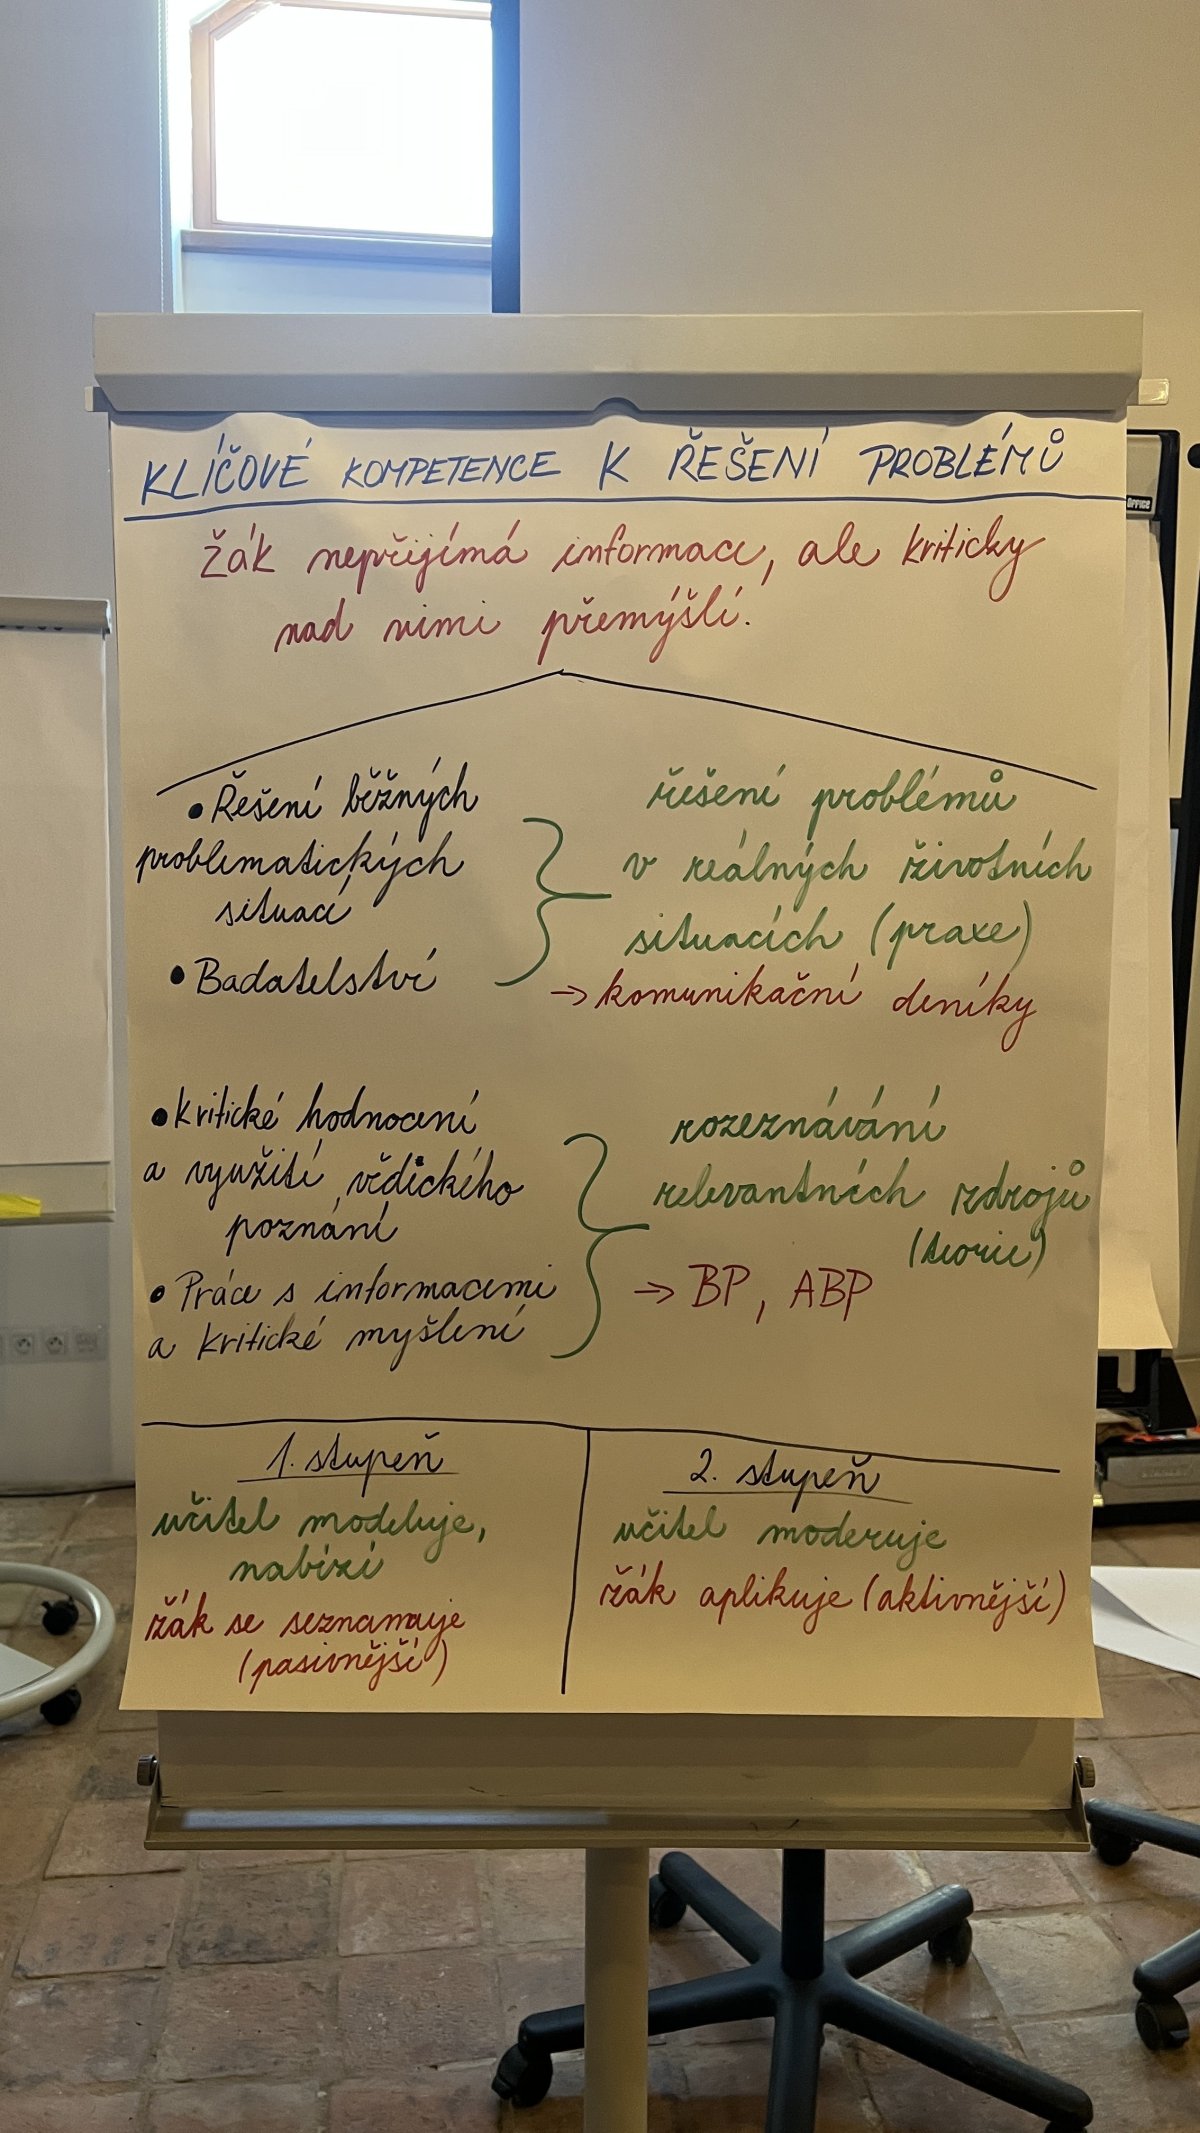 KLÍČOVÉ KOMPETENCE K ŘEŠENÍ PROBLÉMŮ
Žák nepřijímá informace, ale kriticky
nad nimi přemýšlí.
• Řešení běžných
problematických
situací
• Badatelství
řešení problémů
v reálných životních
situacích (praxe)
→ komunikační deníky
• Kritické hodnocení
a využití vědeckého
poznání
• Práce s informacemi
a kritické myšlení
rozeznávání
relevantních zdrojů
(teorie)
→ BP, ABP
1. stupeň
učitel modeluje,
nabízí
žák se seznamuje
(pasivnější)
2. stupeň
učitel moderuje
žák aplikuje (aktivnější)
OFFICE